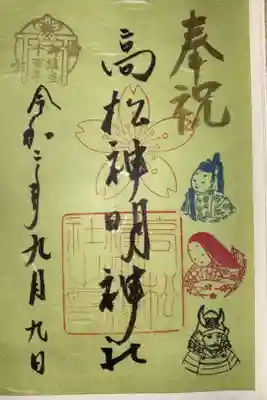 奉祝
高松神明神社
令和二年九月九日